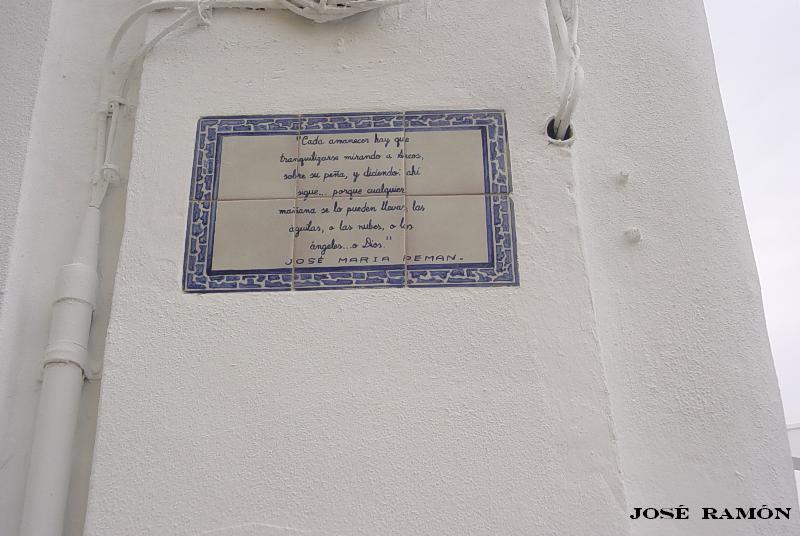 "Cada amanecer hay que
tranquilizarse mirando a Arcos,
sobre su peña, y diciendo: ahí
sigue... porque cualquier
mañana se lo pueden llevar las
águilas, o las nubes, o los
ángeles...o Dios."
JOSÉ MARIA PEMAN.-
JOSÉ RAMÓN